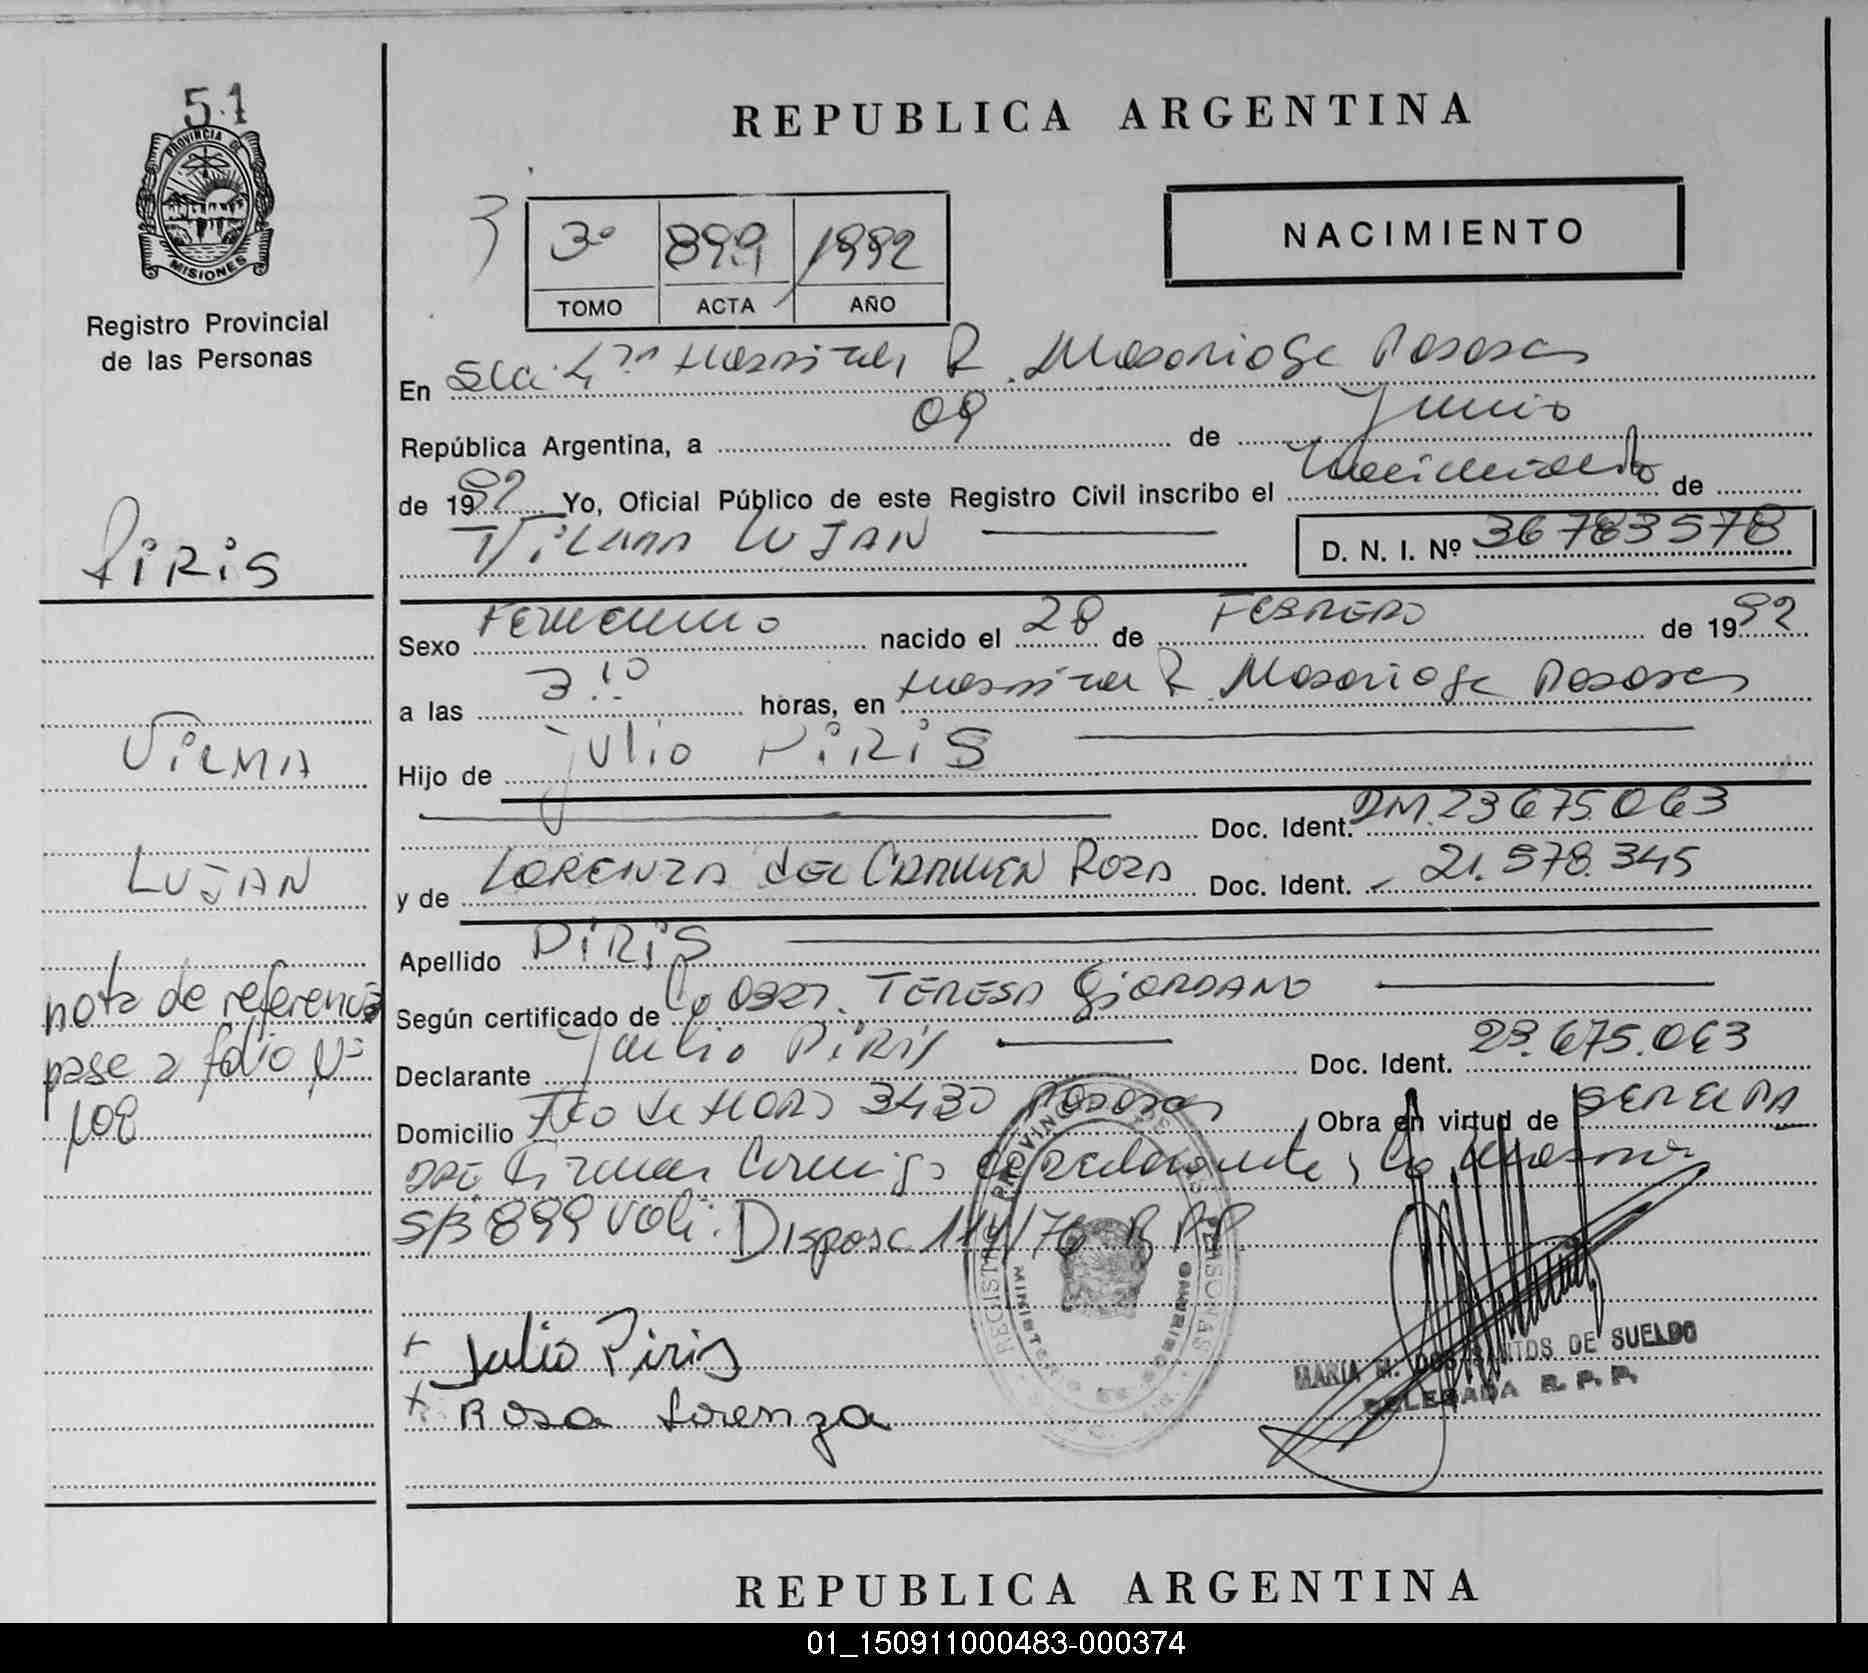 51
PROVINCIA DE
MISIONES
Registro Provincial
de las Personas
PIRIS
VILMA
LUJAN
nota de referencia
pase a folio Nº
108
REPUBLICA ARGENTINA
3
3º 899 1992
TOMO ACTA AÑO
NACIMIENTO
En Hospital R. Posadas
República Argentina, a 09 de Junio
de 1992 Yo, Oficial Público de este Registro Civil inscribo el Nacimiento de
VILMA LUJAN
D. N. I. Nº 36783578
Sexo Femenino nacido el 28 de FEBRERO de 1992
a las 3.10 horas, en Hospital R. Posadas
Hijo de Julio PIRIS
Doc. Ident. DM. 23675.063
y de LORENZA del CARMEN ROZA Doc. Ident. 21.578.345
Apellido PIRIS
Según certificado de TERESA GIORDANO
Declarante Julio PIRIS Doc. Ident. 23.675.063
Domicilio 3430 Posadas Obra en virtud de
declarante, la
899 Disposc 114/76 R.P.P.
+ Julio Piris
+ Rosa Lorenza
MARIA M. DOS SANTOS DE SUELDO
DELEGADA R. P. P.
REPUBLICA ARGENTINA
01_150911000483-000374